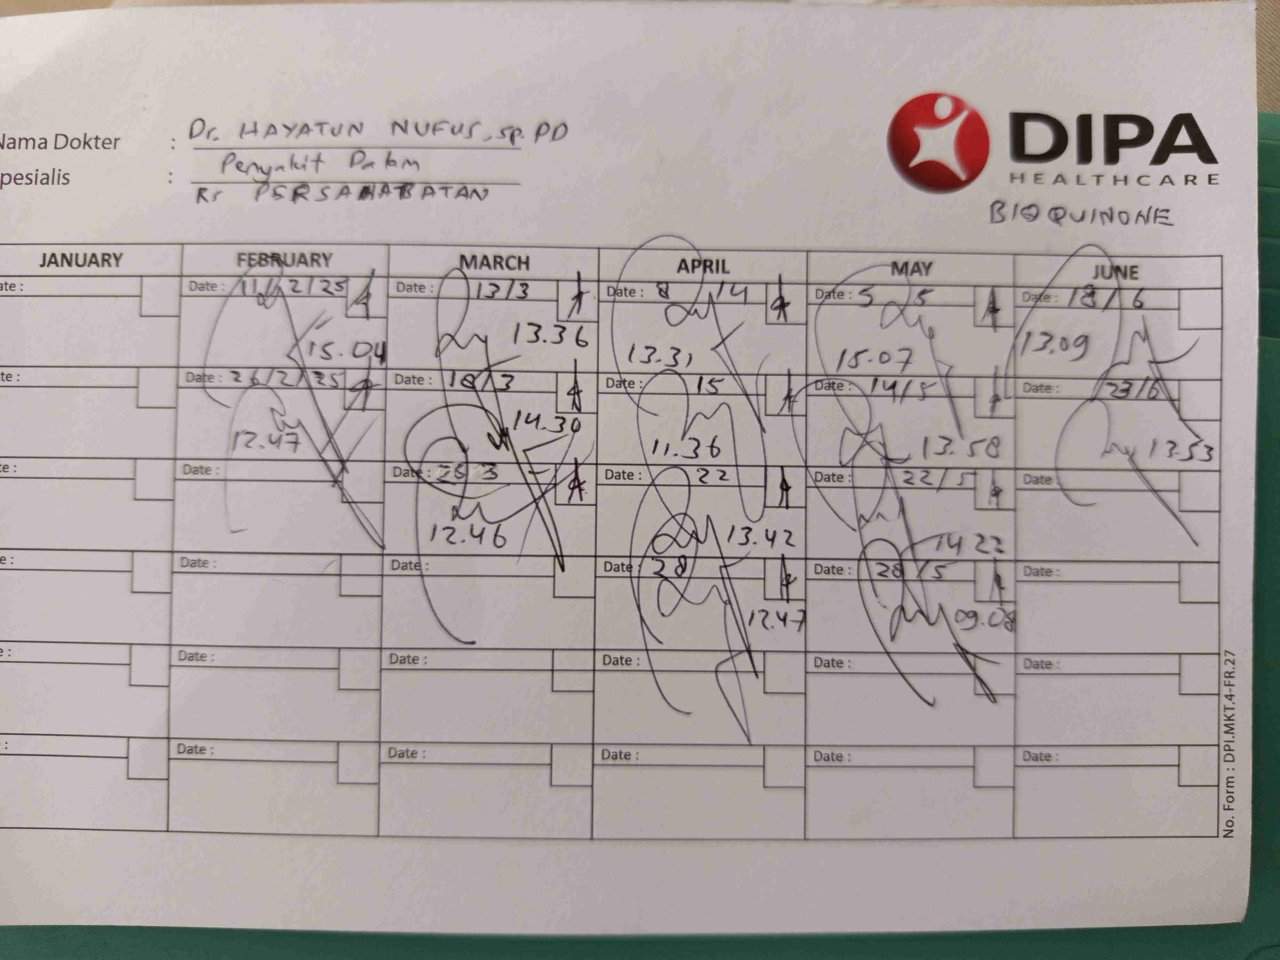 Nama Dokter : Dr. HAYATUN NUFUS, Sp.PD
pesialis : Penyakit Dalam
Rs PERSAHABATAN
DIPA
HEALTHCARE
BIOQUINONE
JANUARY FEBRUARY MARCH APRIL MAY JUNE
ate : Date : 11/2/25 Date : 13/3 Date : 8 14 Date : 5 5 Date : 18/6
15.04 13.36 13.31 15.07 13.09
te : Date : 26/2/25 18/3 Date : 15 Date : 14/5 23/6
12.47 14.30 11.36 13.58 13.53
e : Date : Date : 26 3 Date : 22 22/5 Date :
12.46 13.42 14 22
e : Date : Date : Date : 28 Date : 28/5 Date :
12.47 09.08
e : Date : Date : Date : Date : Date :
: Date : Date : Date : Date : Date :
No. Form : DPI.MKT.4-FR.27